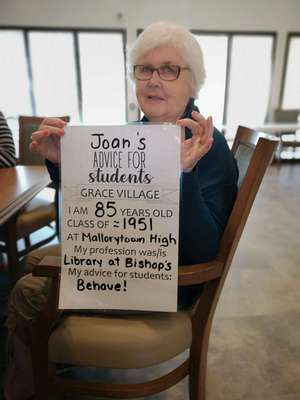 Joan's
ADVICE FOR
students
GRACE VILLAGE
I AM 85 YEARS OLD
CLASS OF ≈1951
AT Mallorytown High
My profession was/is
Library at Bishop's
My advice for students:
Behave!